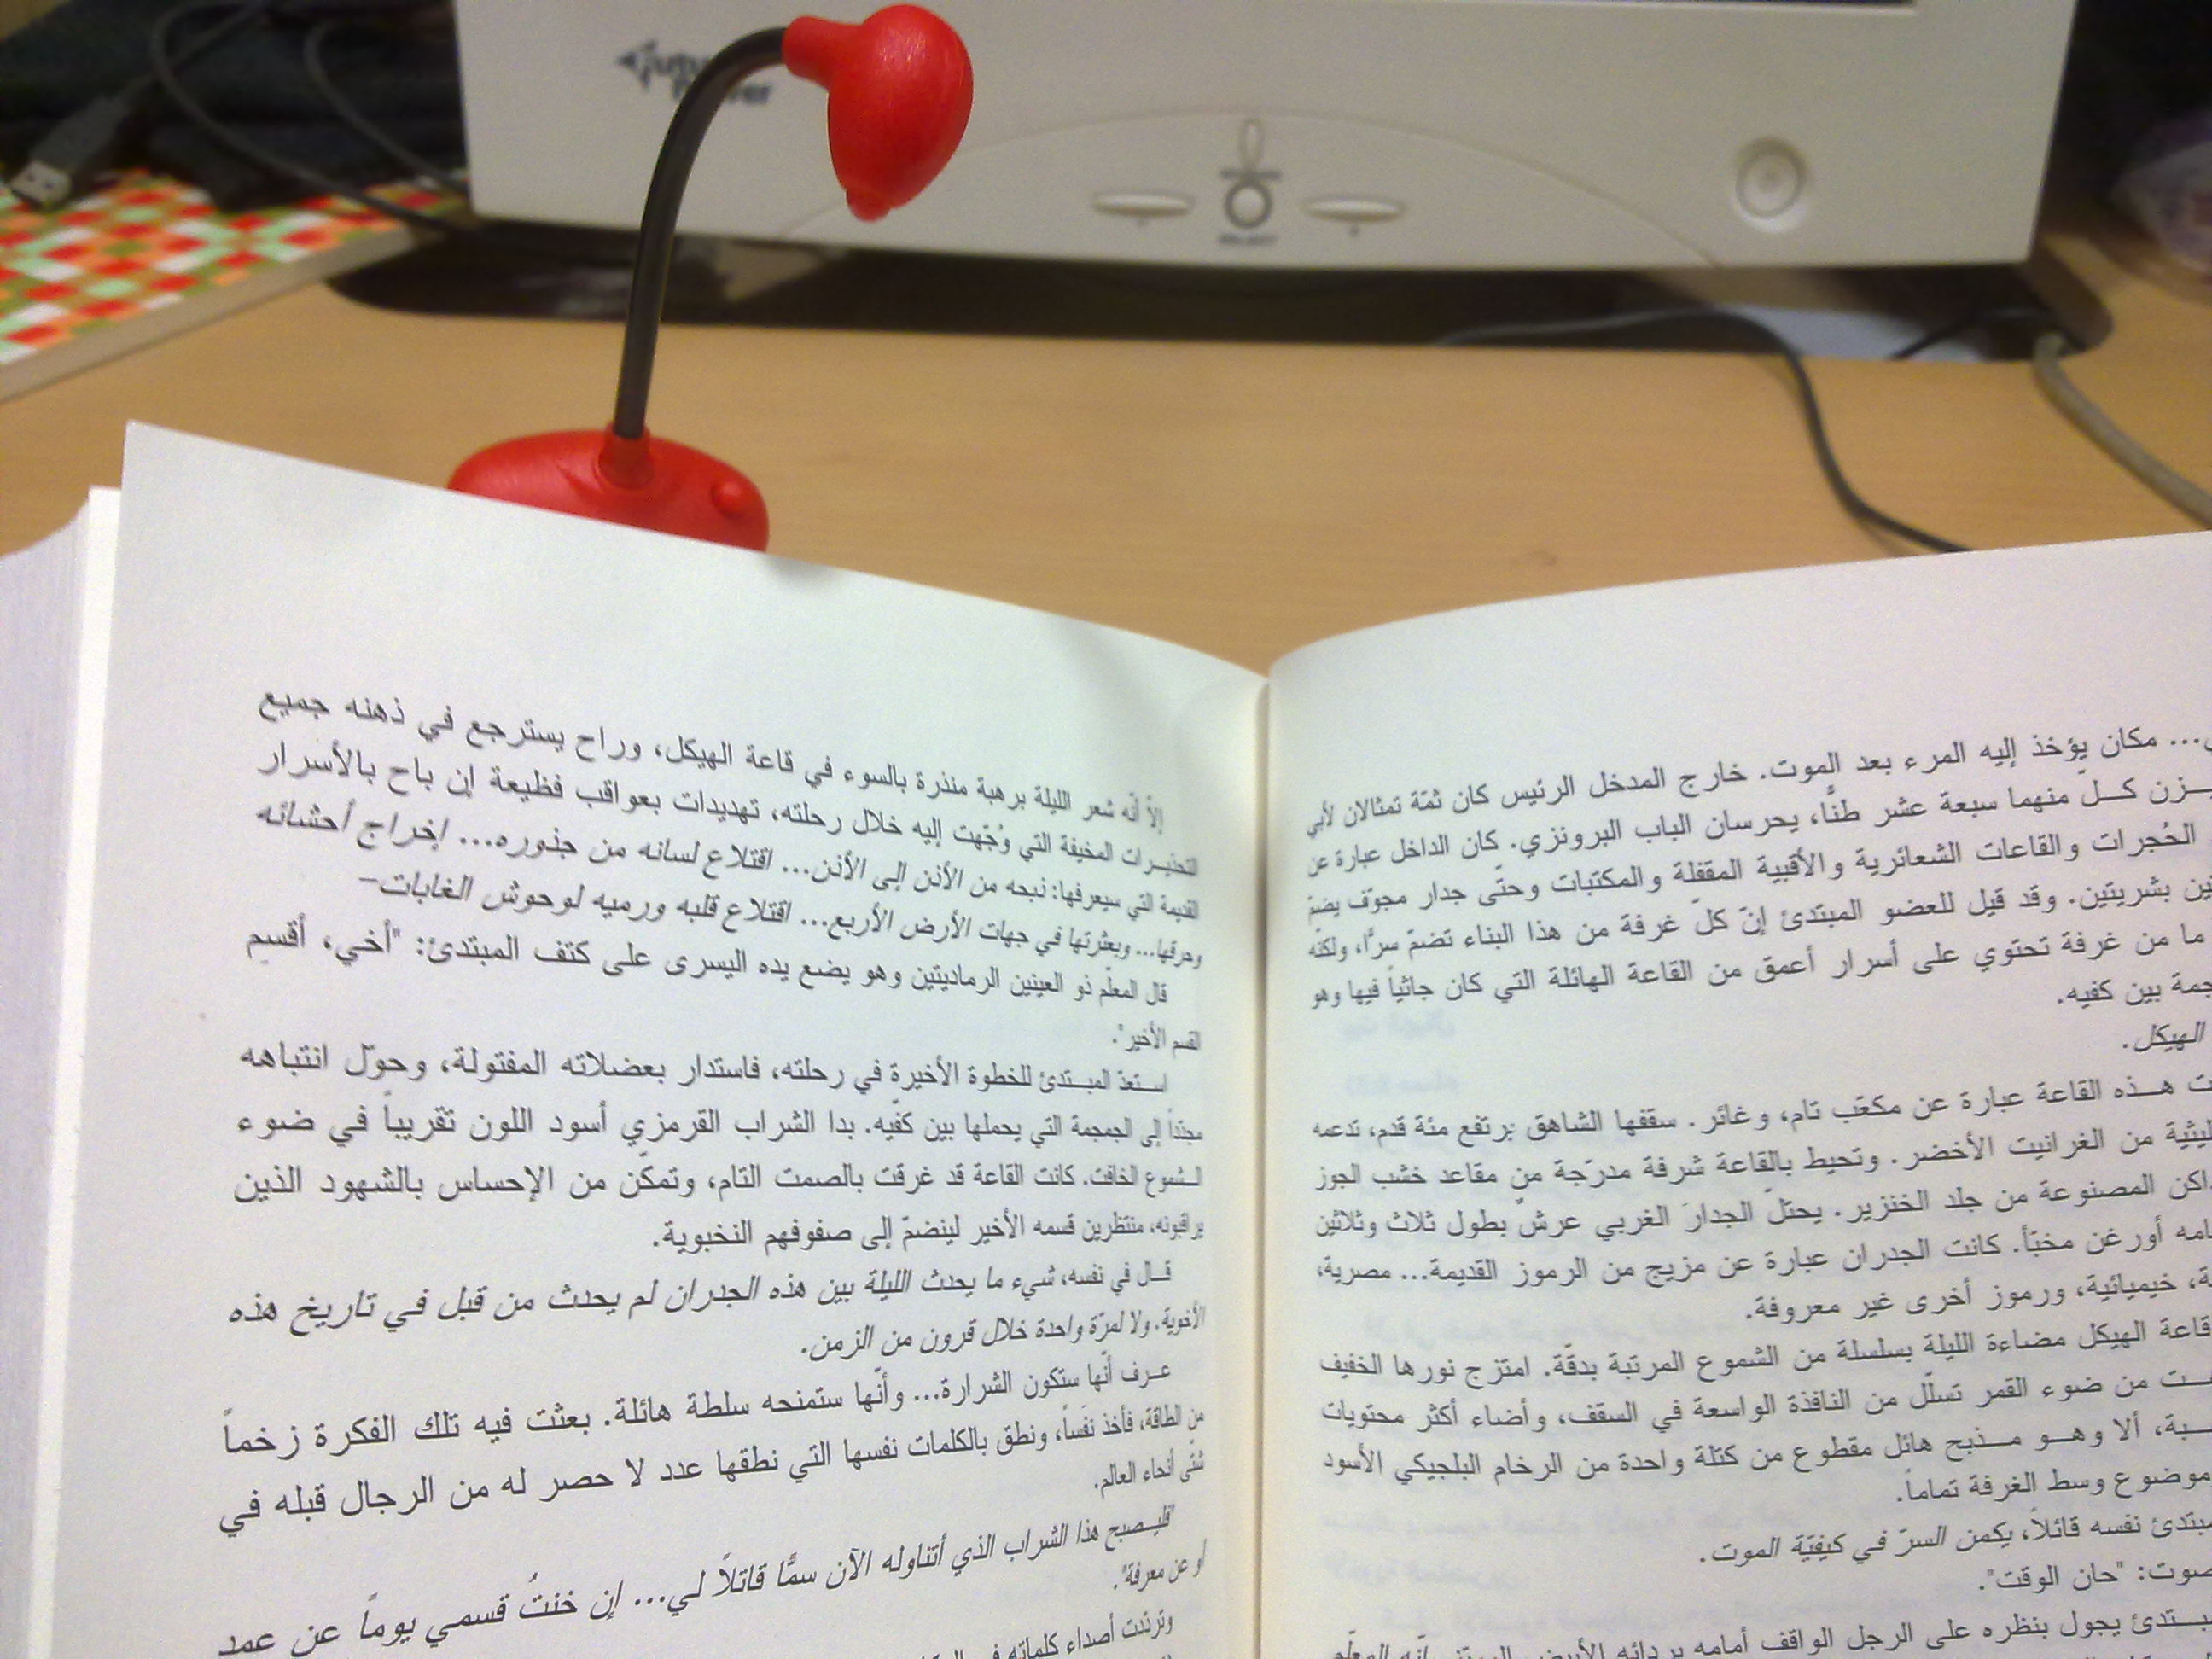 مكان يؤخذ إليه المرء بعد الموت. خارج المدخل الرئيس كان ثمّة تمثالان لأبي
كلّ منهما سبعة عشر طنًّا، يحرسان الباب البرونزي. كان الداخل عبارة عن
الحُجرات والقاعات الشعائرية والأقبية المقفلة والمكتبات وحتّى جدار مجوّف يضمّ
بشريتين. وقد قيل للعضو المبتدئ إنّ كلّ غرفة من هذا البناء تضمّ سرًّا، ولكنّه
ما من غرفة تحتوي على أسرار أعمق من القاعة الهائلة التي كان جاثياً فيها وهو
بين كفيه.
الهيكل.
هذه القاعة عبارة عن مكعّب تام، وغائر. سقفها الشاهق يرتفع مئة قدم، تدعمه
من الغرانيت الأخضر. وتحيط بالقاعة شرفة مدرّجة من مقاعد خشب الجوز
المصنوعة من جلد الخنزير. يحتلّ الجدارَ الغربي عرشٌ بطول ثلاث وثلاثين
أورغن مخبّأ. كانت الجدران عبارة عن مزيج من الرموز القديمة... مصرية،
خيميائية، ورموز أخرى غير معروفة.
قاعة الهيكل مضاءة الليلة بسلسلة من الشموع المرتبة بدقّة. امتزج نورها الخفيف
من ضوء القمر تسلّل من النافذة الواسعة في السقف، وأضاء أكثر محتويات
ألا وهو مذبح هائل مقطوع من كتلة واحدة من الرخام البلجيكي الأسود
موضوع وسط الغرفة تماماً.
نفسه قائلاً، يكمن السرّ في كيفيّة الموت.
"حان الوقت".
يجول بنظره على الرجل الواقف أمامه بردائه الأبيض
إلاّ أنّه شعر الليلة برهبة منذرة بالسوء في قاعة الهيكل، وراح يسترجع في ذهنه جميع
التحذيرات المخيفة التي وُجّهت إليه خلال رحلته، تهديدات بعواقب فظيعة إن باح بالأسرار
القديمة التي سيعرفها: ذبحه من الأذن إلى الأذن... اقتلاع لسانه من جذوره... إخراج أحشائه
وحرقها... وبعثرتها في جهات الأرض الأربع... اقتلاع قلبه ورميه لوحوش الغابات–
قال المعلّم ذو العينين الرماديتين وهو يضع يده اليسرى على كتف المبتدئ: "أخي، أقسِم
القسم الأخير".
استعدّ المبتدئ للخطوة الأخيرة في رحلته، فاستدار بعضلاته المفتولة، وحوّل انتباهه
مجدّداً إلى الجمجمة التي يحملها بين كفّيه. بدا الشراب القرمزي أسود اللون تقريباً في ضوء
الشموع الخافت. كانت القاعة قد غرقت بالصمت التام، وتمكّن من الإحساس بالشهود الذين
يراقبونه، منتظرين قسمه الأخير لينضمّ إلى صفوفهم النخبوية.
قال في نفسه، شيء ما يحدث الليلة بين هذه الجدران لم يحدث من قبل في تاريخ هذه
الأخوية. ولا لمرّة واحدة خلال قرون من الزمن.
عرف أنّها ستكون الشرارة... وأنّها ستمنحه سلطة هائلة. بعثت فيه تلك الفكرة زخماً
من الطاقة، فأخذ نفَساً، ونطق بالكلمات نفسها التي نطقها عدد لا حصر له من الرجال قبله في
شتّى أنحاء العالم.
"فليصبح هذا الشراب الذي أتناوله الآن سمًّا قاتلاً لي... إن خنتُ قسمي يوماً عن عمد
أو عن معرفة".
وتردّدت أصداء كلماته في